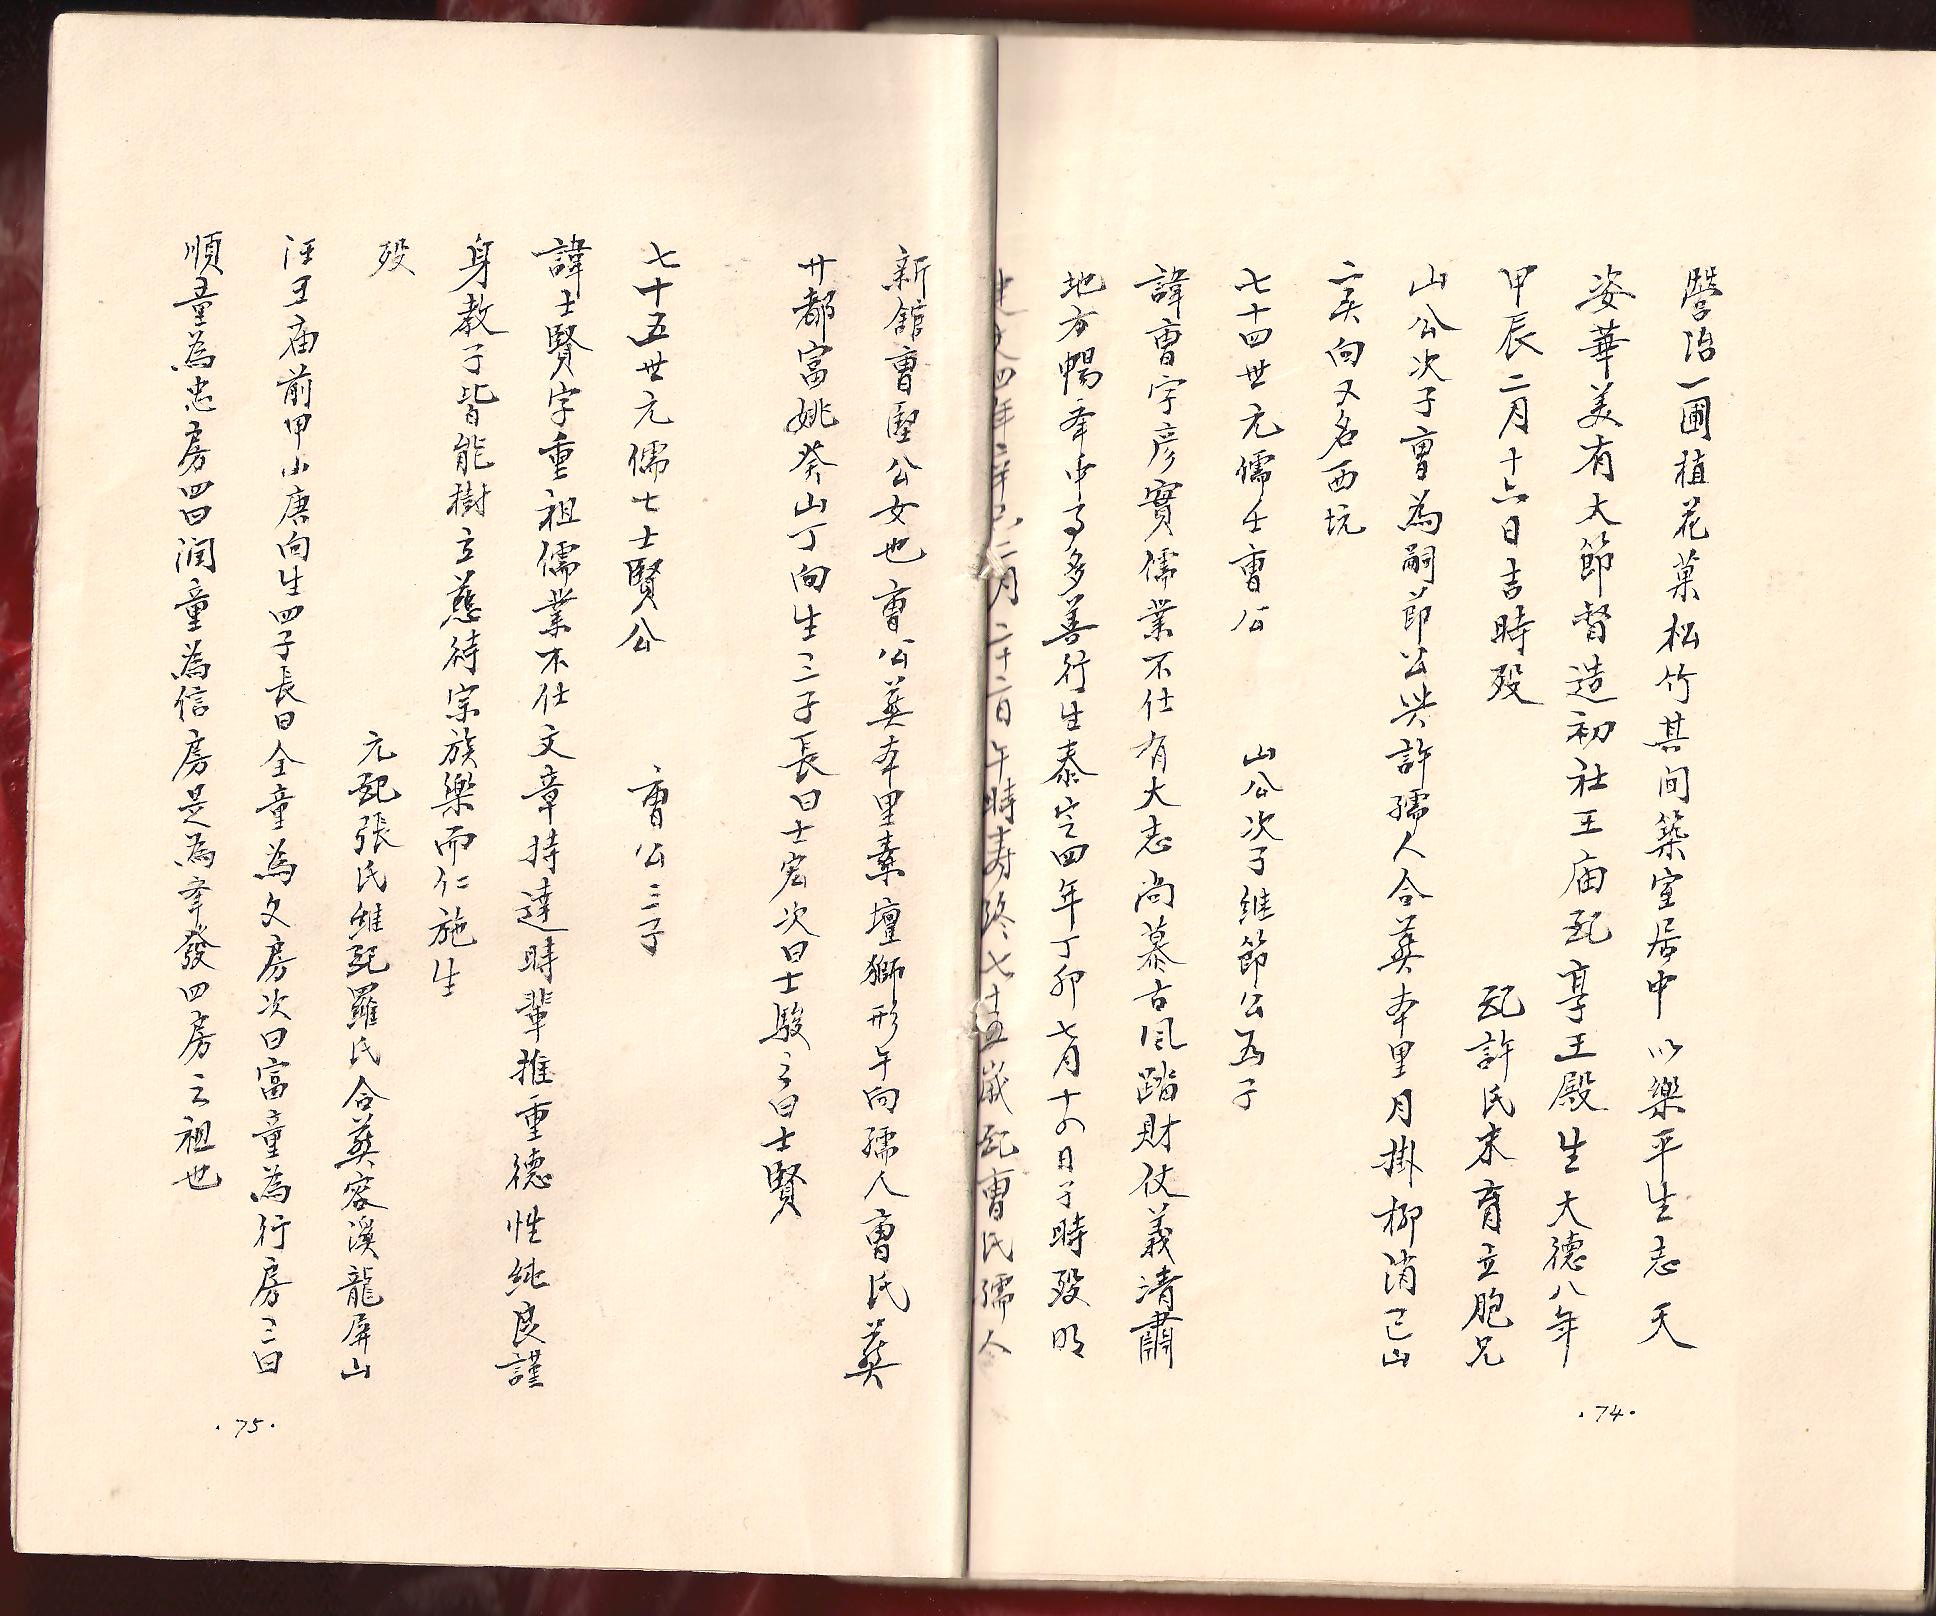 營治一圃植花菓松竹其间築室居中以樂平生志天
姿華美有大節督造初社王庙配享王殿生大德八年
甲辰二月十六日吉時殁 配許氏未育立胞兄
山公次子曺為嗣節公與許孺人合葬本里月掛柳消巳山
亥向又名西坑
七十四世元儒士曺公 山公次子継節公為子
諱曺字彦實儒業不仕有大志尚慕古風踏財仗義清肅
地方暢奉申多善行生泰定四年丁卯七月十四日子時殁明
年二月二十二日午時寿終七十五歳配曺氏孺人
·74·
新舘曺堅公女也曺公葬本里素壇獅形午向孺人曺氏葬
廿都富姚癸山丁向生三子長曰士宏次曰士駿三曰士賢
七十五世元儒士士賢公 曺公三子
諱士賢字重祖儒業不仕文章持達時輩推重德性純良謹
身教子皆能樹立慈待宗族樂而仁施生
殁 元配張氏継配羅氏合葬容溪龍屏山
汪王庙前甲山庚向生四子長曰全童為文房次曰富童為行房三曰
順童為忠房四曰润童為信房是為奉發四房之祖也
·75·